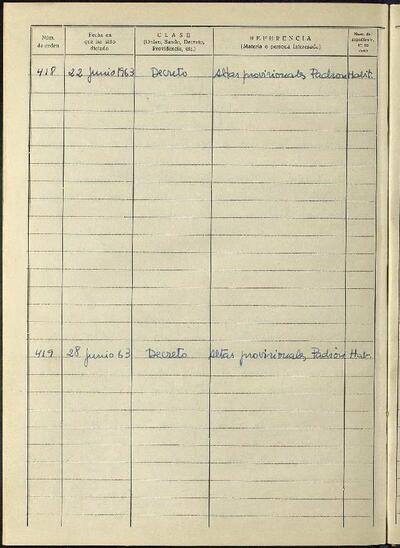 Núm. de orden
Fecha en que ha sido dictado
CLASE (Orden, Bando, Decreto, Providencia, etc.)
REFERENCIA (Materia o persona interesada)
Núm. de expediente, en su caso
418 22 Junio 1963 Decreto Altas provisionales Padrón Habit.
419 28 Junio 63 Decreto Altas provisionales Padrón Hab.